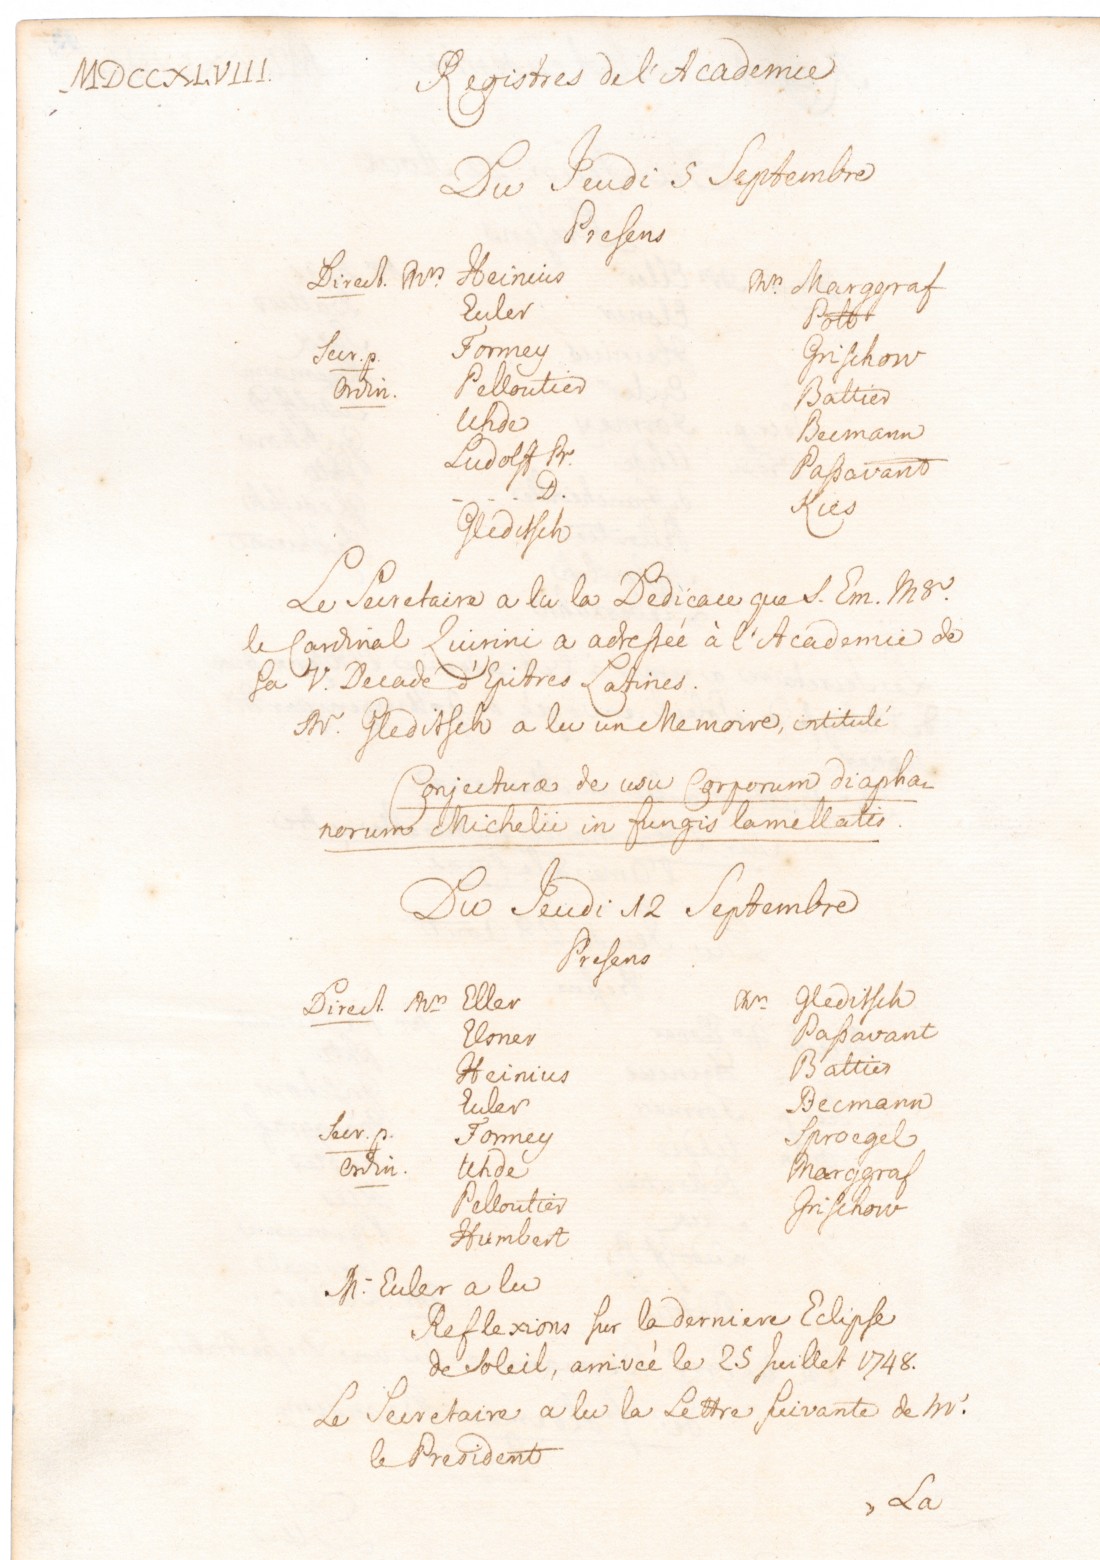 MDCCXLVIII.
Registres de l'Academie
Du Jeudi 5 Septembre
Presens
Direct. Mrs Heinius
Euler
Secr. p. Formey
Ordin. Pelloutier
Uhde
Ludolff Pr.
- - - D.
Gleditsch
Mrs Marggraf
Pott
Grischow
Battier
Becmann
Passavant
Kies
Le Secretaire a lu la Dedicace que S. Em. Mgr.
le Cardinal Quirini a adressée à l'Academie de
sa V. Decade d'Epitres Latines.
Mr. Gleditsch a lu un Memoire, intitulé
Conjecturae de usu Corporum diapha-
norum Michelii in fungis lamellatis.
Du Jeudi 12 Septembre
Presens
Direct. Mrs Eller
Elsner
Heinius
Euler
Secr. p. Formey
Ordin. Uhde
Pelloutier
Humbert
Mrs Gleditsch
Passavant
Battier
Becmann
Sproegel
Marggraf
Grischow
Mr. Euler a lu
Reflexions sur la derniere Eclipse
de Soleil, arrivée le 25 Juillet 1748.
Le Secretaire a lu la Lettre suivante de Mr.
le President
„ La